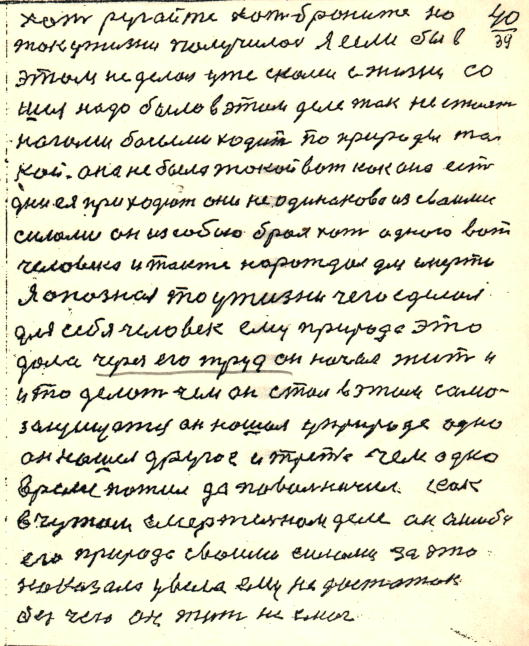 хот ругайте хот браните но 40/39
так ужизни получилос Я если бы в
этом не делал уже скоми с жизни со
шол надо было в этом деле так не стоят
ногоми босыми ходит по природы та-
кой. она не была такой вот как она ест
дни ея приходят они не одинакова из своими
силоми он из собою брал хот одного вот
человека и также нарождал для смерти
Я опознал то ужизни чего сделал
для себя человек ему природа это
дала через его труд он начал жит и
и то делот чем он стал в этом само-
защищатца он нашол у природе одно
он нашол другое и трете чем одно
время пожил да поволничил. как
в чужом смертелном деле он ошибся
его природа своими силоми за это
наказала увела ему не достаток
без чего он жит не смог